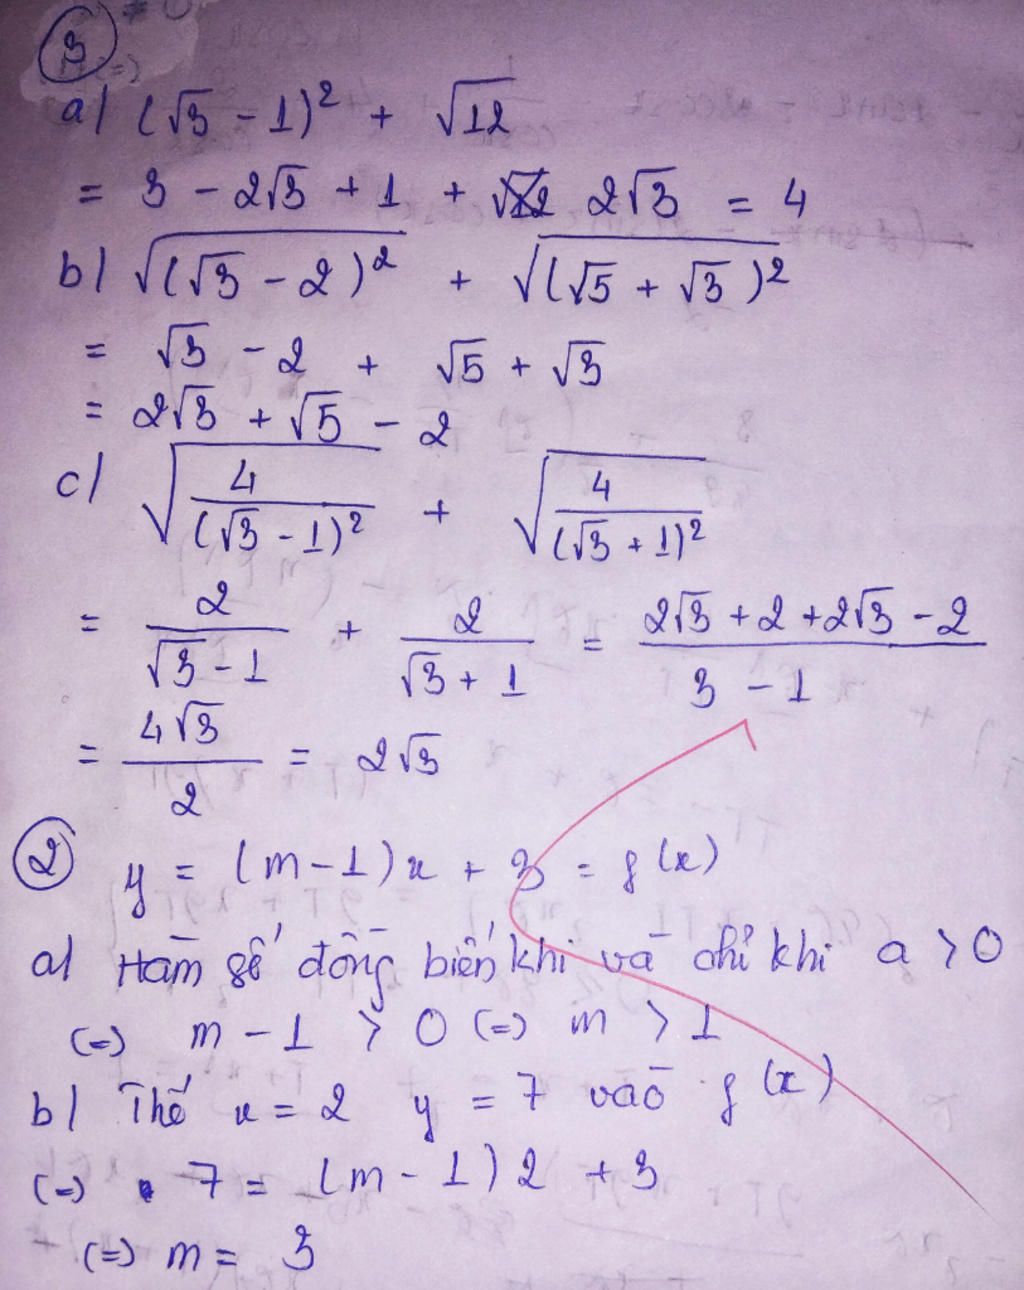 3
a) (√3 - 1)² + √12
= 3 - 2√3 + 1 + 2√3 = 4
b) √((√3 - 2)²) + √((√5 + √3)²)
= √3 - 2 + √5 + √3
= 2√3 + √5 - 2
c) √(4/(√3 - 1)²) + √(4/(√3 + 1)²)
= 2/(√3 - 1) + 2/(√3 + 1) = (2√3 + 2 + 2√3 - 2)/(3 - 1)
= 4√3/2 = 2√3
2 y = (m - 1)x + 3 = f(x)
a) Hàm số đồng biến khi và chỉ khi a > 0
(=) m - 1 > 0 (=) m > 1
b) Thế x = 2 y = 7 vào f(x)
(=) 7 = (m - 1)2 + 3
(=) m = 3